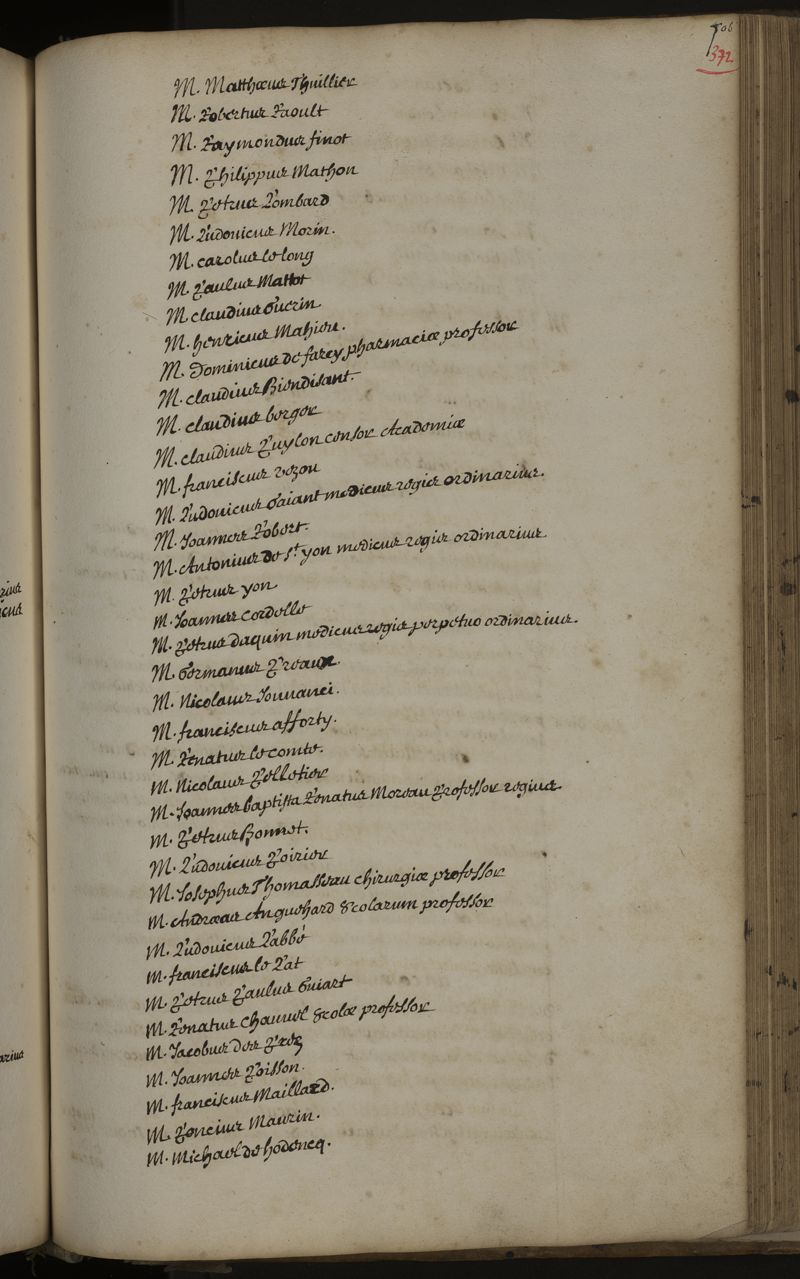 506
372
M. Matthæus Thuillier
M. Robertus Raoult
M. Raymondus finot
M. Philippus Mathon
M. Petrus Lombard
M. Ludouicus Morin.
M. carolus le long
M. Paulus Mattot
M claudius Guerin.
M. henricus Mahieu.
M. Dominicus de farcy pharmaciæ professor
M. claudius Biendisant.
M. claudius berger
M. claudius Puylon censor Academiæ
M. franciscus vezou
M. Ludouicus Gaiant medicus regis ordinarius.
M. Joannes Robert.
M. Antonius de St yon medicus regis ordinarius.
M Petrus yon
M. Joannes Cordelle
M. Petrus daquin medicus regis perpetuo ordinarius.
M. Germanus Preaux.
M. Nicolaus
M. franciscus afforty.
M. Renatus le comte.
M. Nicolaus Pelletier
M. Joannes baptista Renatus Moreau Professor regius.
M. Petrus Bonnet.
M. Ludouicus Poirier
M. Josephus Thomasseau chirurgiæ professor
M. Andræas Anguehard Scolarum professor
M. Ludouicus Labbé
M. franciscus le Rat
M. Petrus Paulus Guiart
M. Renatus Chauuel Scolæ professor
M. Jacobus des Prez
M. Joannes Poisson.
M. franciscus Maillard.
M. Poncius Maurin.
M. Michael de hodencq.